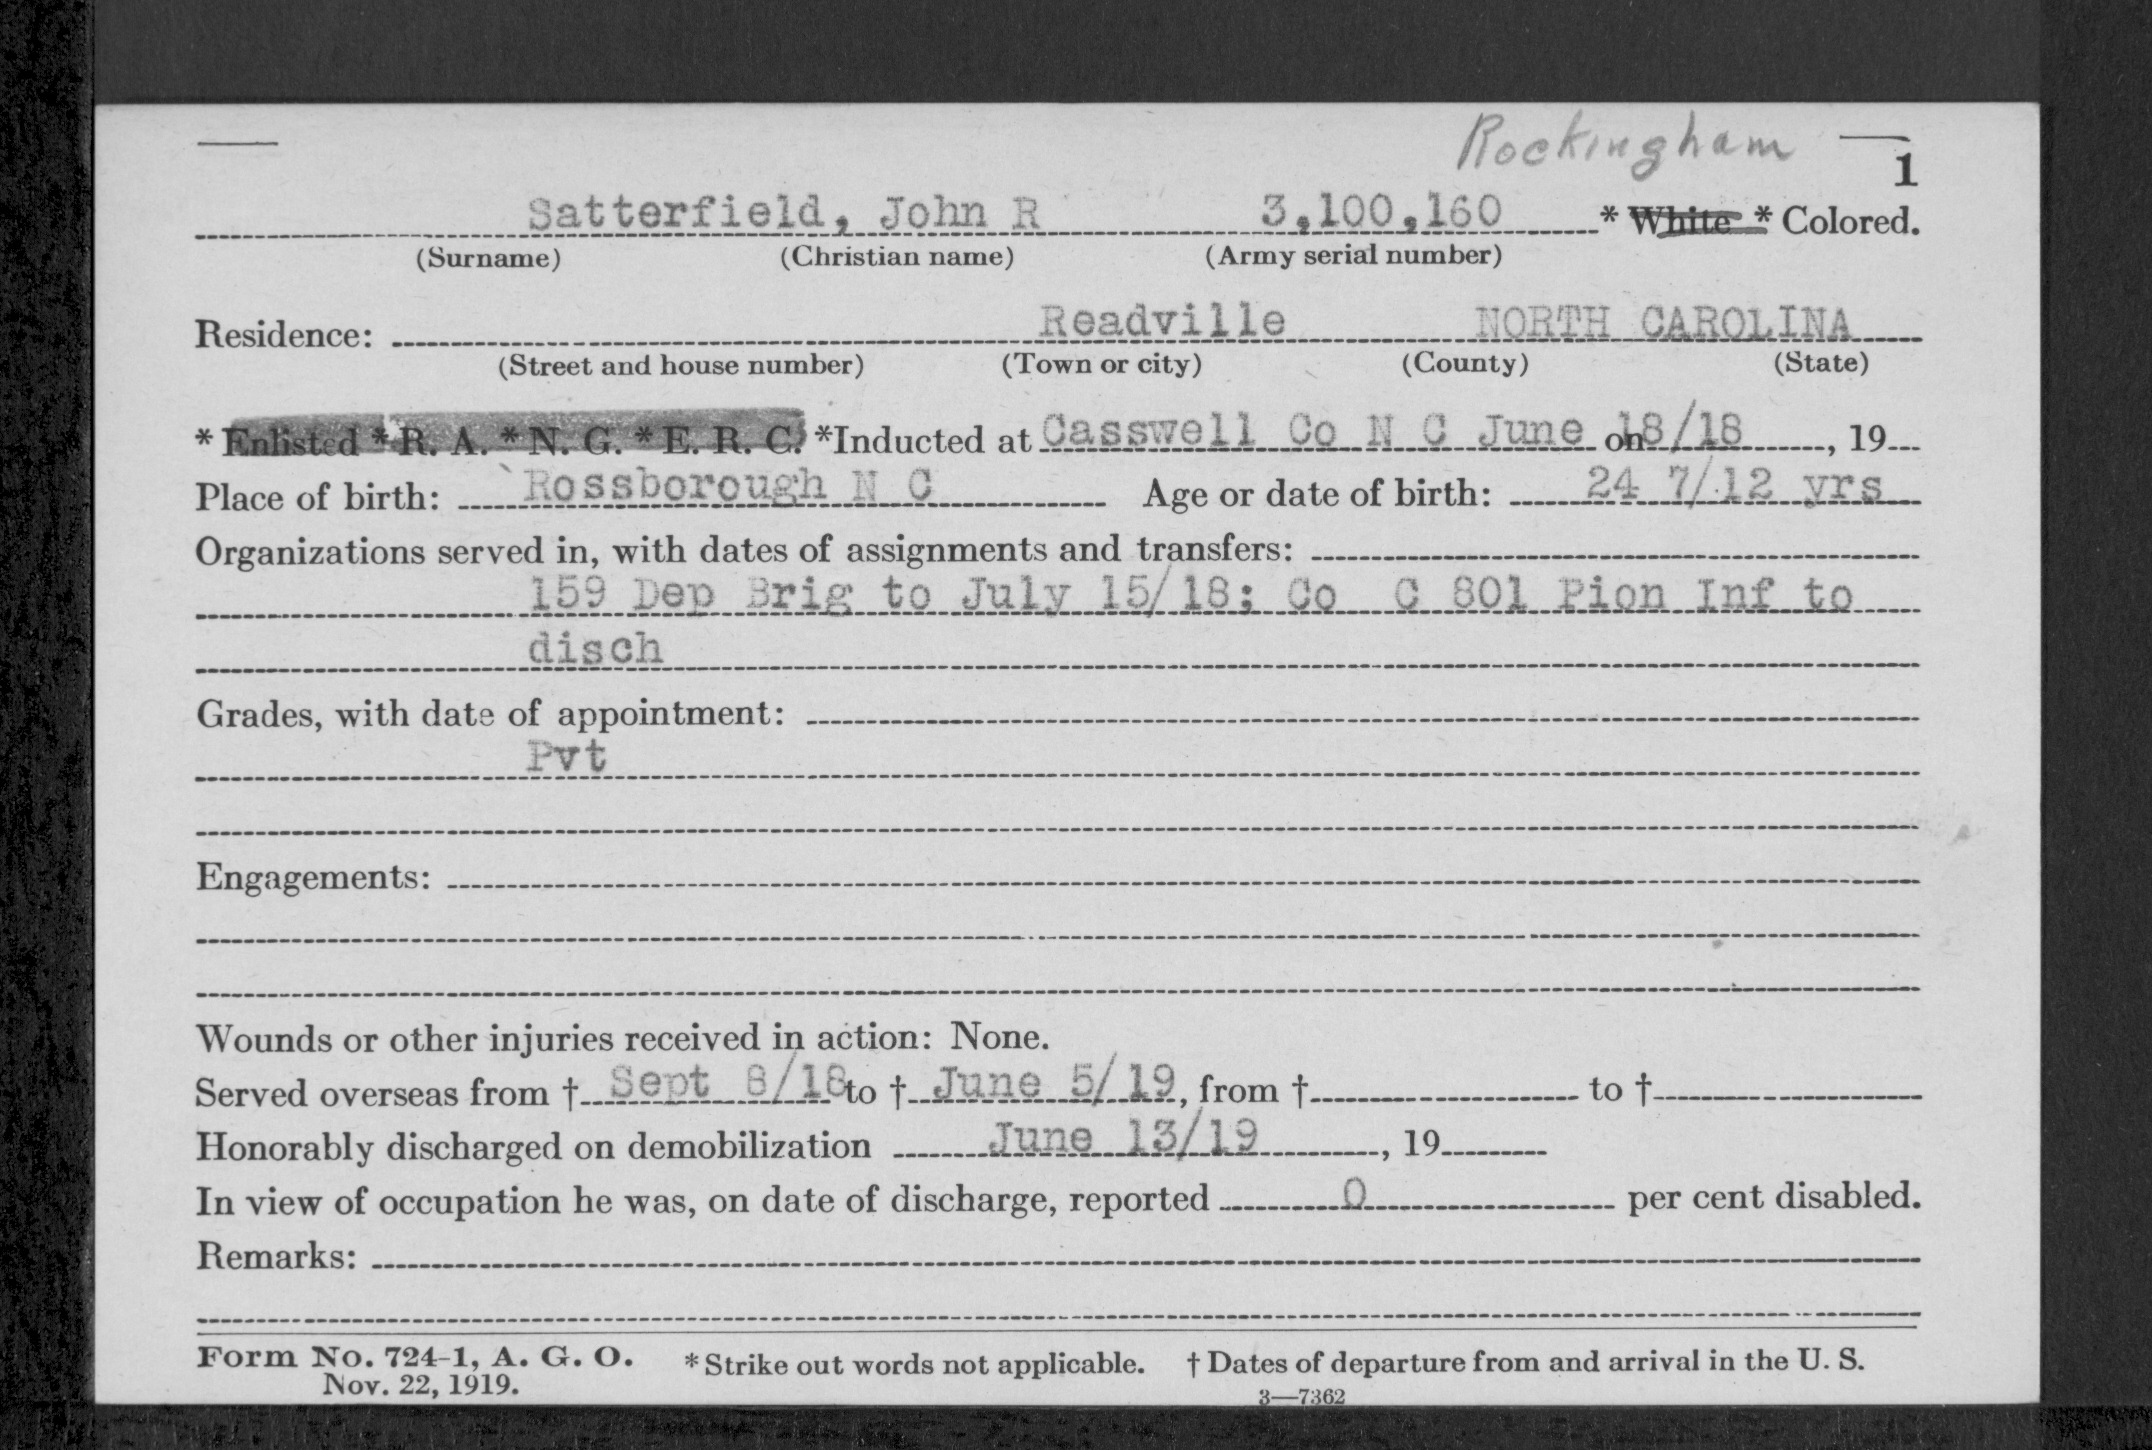 Rockingham
1
Satterfield, John R 3,100,160 * White * Colored.
(Surname) (Christian name) (Army serial number)
Residence: Readville NORTH CAROLINA
(Street and house number) (Town or city) (County) (State)
* Enlisted * R. A. * N. G. * E. R. C. *Inducted at Casswell Co N C June on 18/18, 19
Place of birth: Rossborough N C Age or date of birth: 24 7/12 yrs
Organizations served in, with dates of assignments and transfers:
159 Dep Brig to July 15/18; Co C 801 Pion Inf to
disch
Grades, with date of appointment:
Pvt
Engagements:
Wounds or other injuries received in action: None.
Served overseas from † Sept 8/18 to † June 5/19, from † to †
Honorably discharged on demobilization June 13/19, 19
In view of occupation he was, on date of discharge, reported 0 per cent disabled.
Remarks:
Form No. 724-1, A. G. O. * Strike out words not applicable. † Dates of departure from and arrival in the U. S.
Nov. 22, 1919.
3—7362